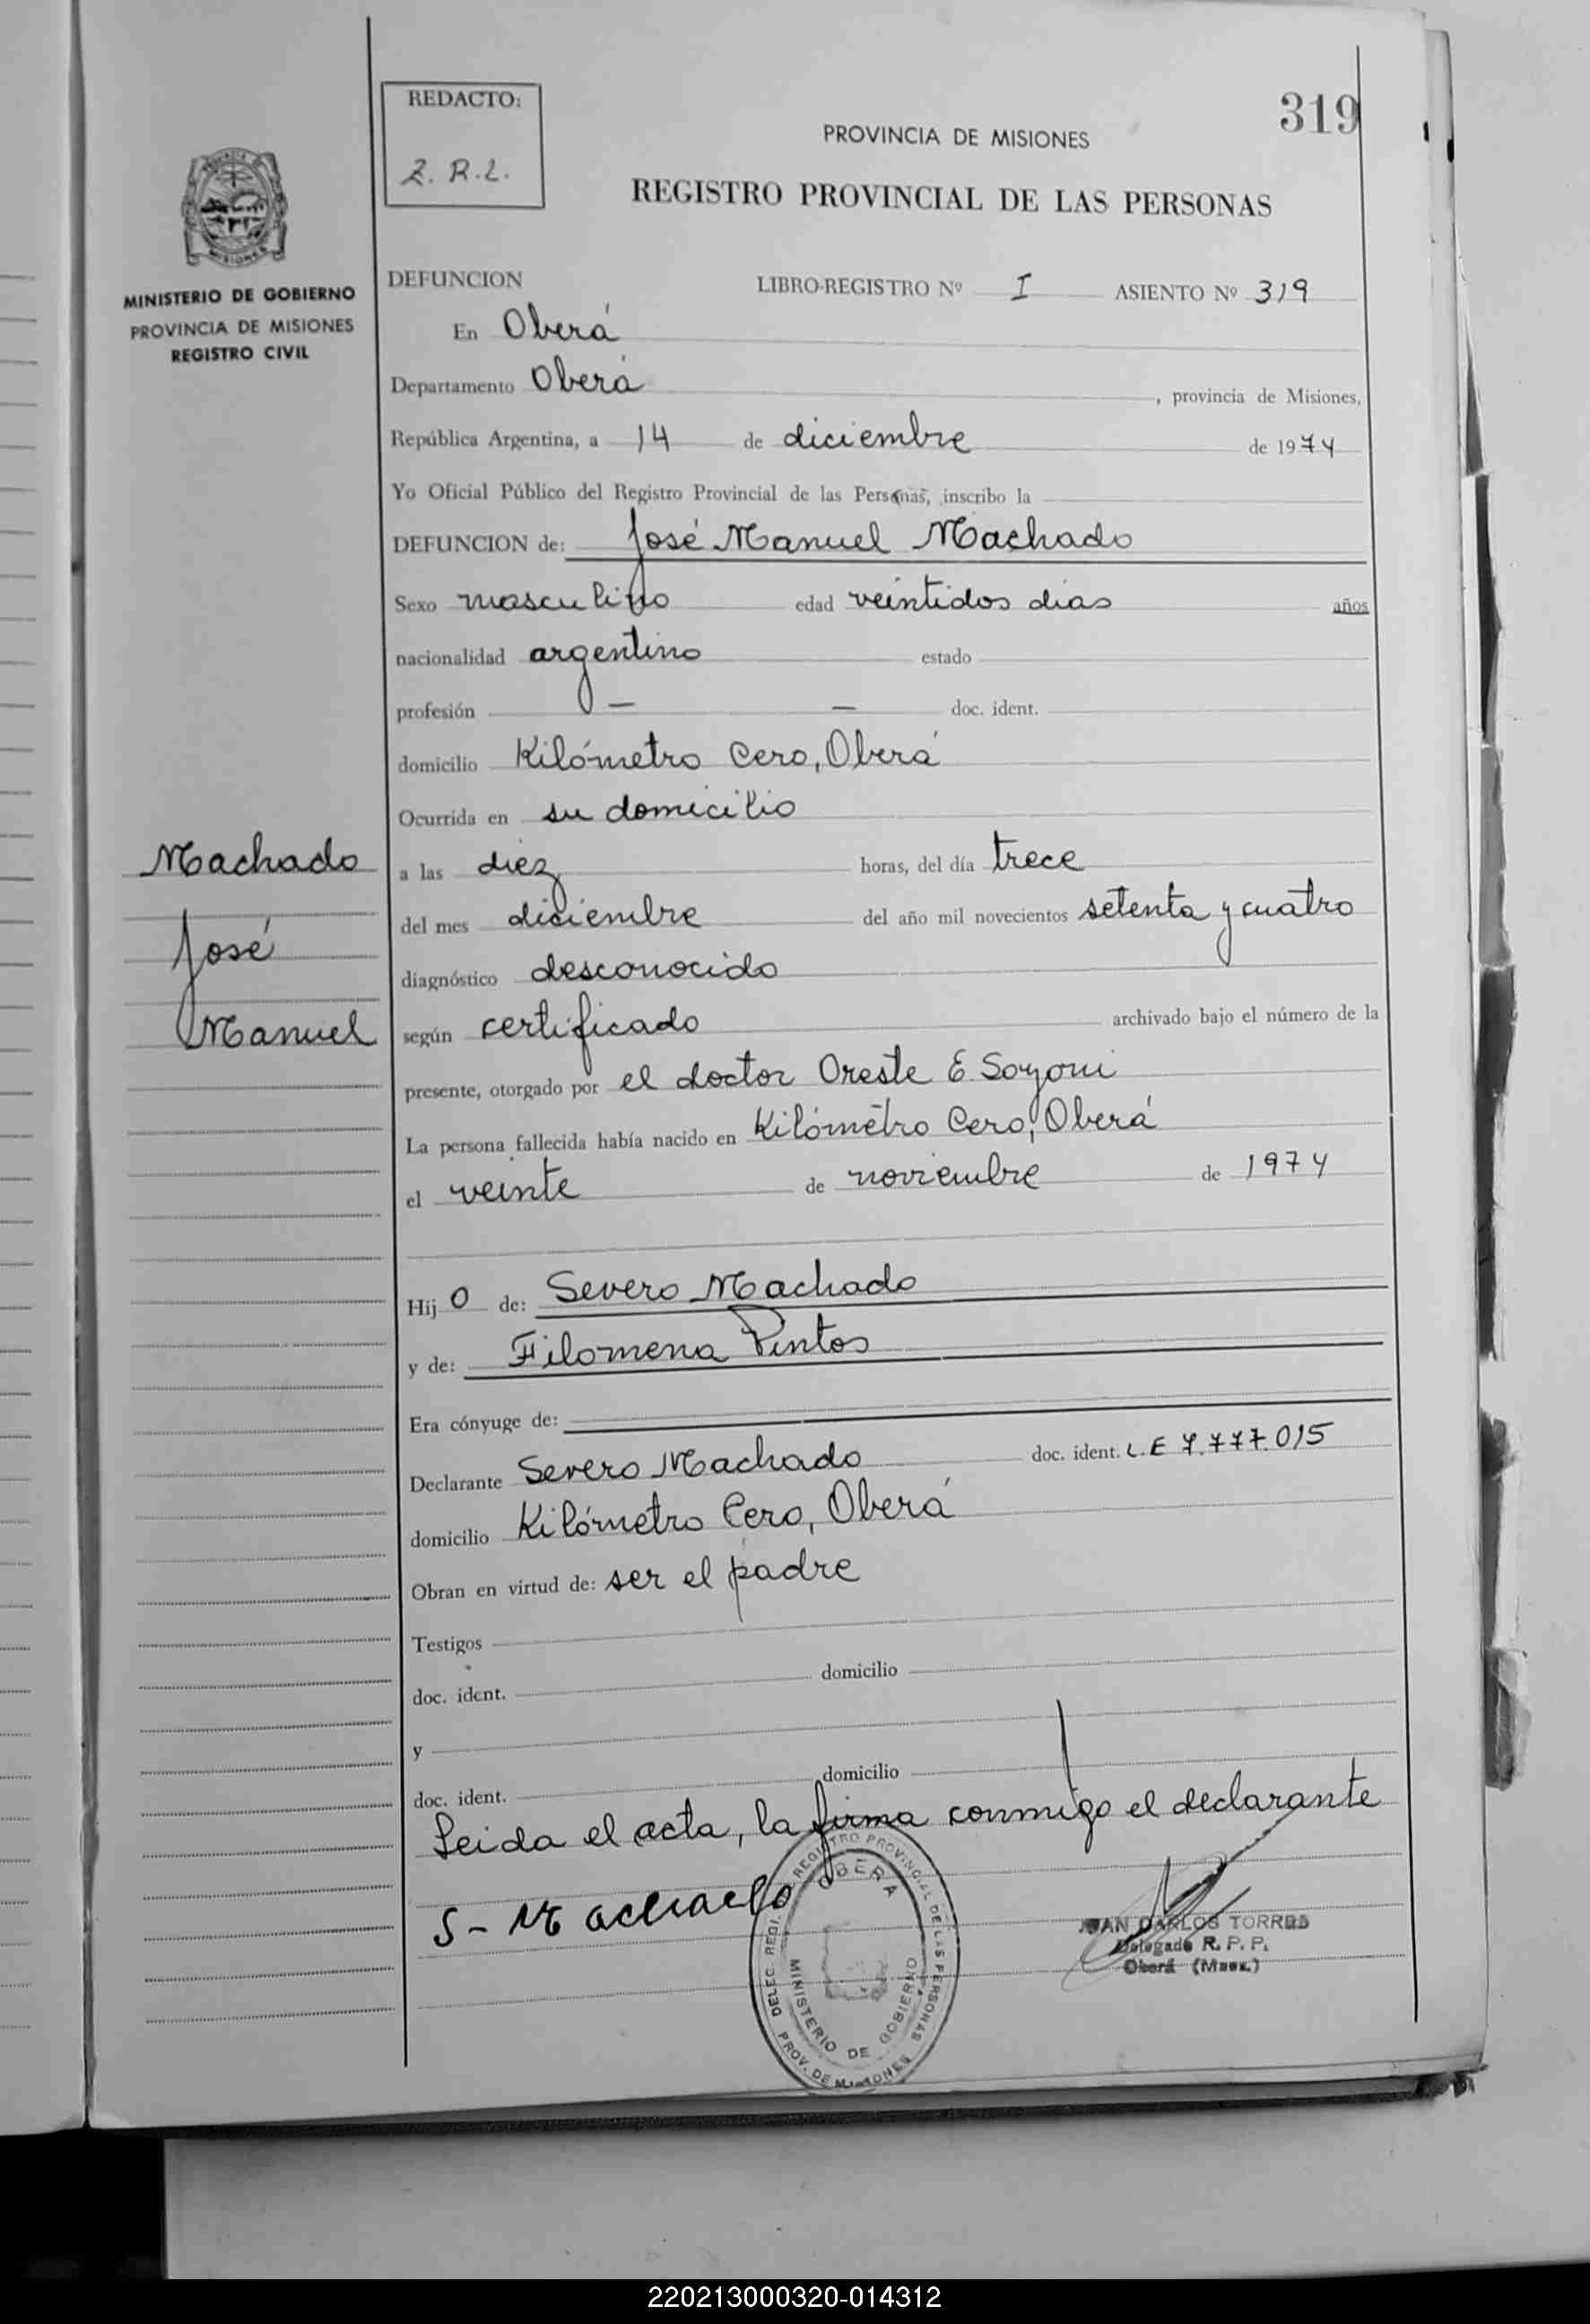 REDACTO:
Z. R. L.
319
PROVINCIA DE MISIONES
REGISTRO PROVINCIAL DE LAS PERSONAS
MINISTERIO DE GOBIERNO
PROVINCIA DE MISIONES
REGISTRO CIVIL
DEFUNCION LIBRO-REGISTRO Nº I ASIENTO Nº 319
En Oberá
Departamento Oberá, provincia de Misiones,
República Argentina, a 14 de diciembre de 1974
Yo Oficial Público del Registro Provincial de las Personas, inscribo la
DEFUNCION de: José Manuel Machado
Sexo masculino edad veintidos días años
nacionalidad argentino estado
profesión — — doc. ident.
domicilio Kilómetro Cero, Oberá
Ocurrida en su domicilio
Machado
José
Manuel
a las diez horas, del día trece
del mes diciembre del año mil novecientos setenta y cuatro
diagnóstico desconocido
según certificado archivado bajo el número de la
presente, otorgado por el doctor Oreste E.
La persona fallecida había nacido en Kilómetro Cero, Oberá
el veinte de noviembre de 1974
Hij o de: Severo Machado
y de: Filomena Pintos
Era cónyuge de:
Declarante Severo Machado doc. ident. L.E 7.777.015
domicilio Kilómetro Cero, Oberá
Obran en virtud de: ser el padre
Testigos
doc. ident. domicilio
y
doc. ident. domicilio
Leida el acta, la firma conmigo el declarante
S - Machado
DELEG. REGI. REGISTRO PROVINCIAL DE LAS PERSONAS
OBERA
MINISTERIO DE GOBIERNO
PROV. DE MISIONES
JUAN CARLOS TORRES
Delegado R. P. P.
Oberá (Mnes.)
220213000320-014312